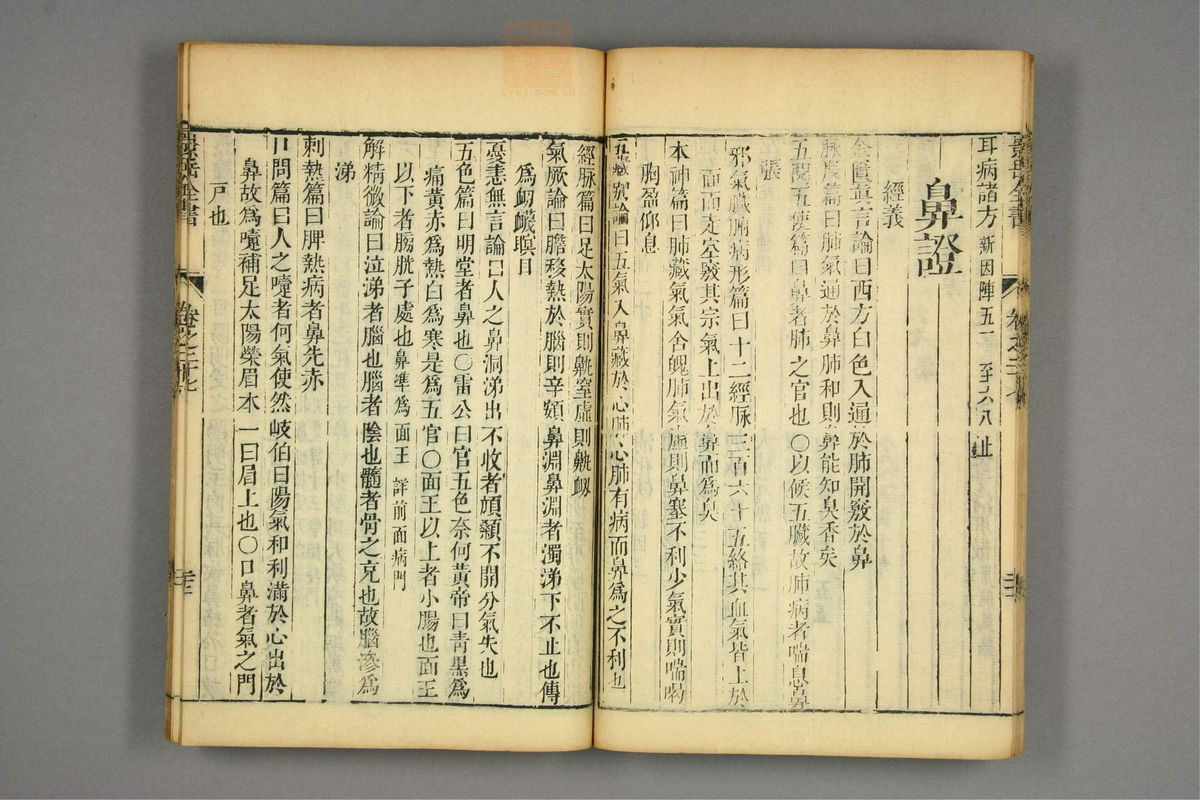 耳病諸方 新因陣五一 至六八止
鼻證
經義
金匱真言論曰西方白色入通於肺開竅於鼻
脈度篇曰肺氣通於鼻肺和則鼻能知臭香矣
五閱五使篇曰鼻者肺之官也〇以候五臟故肺病者喘息鼻
張
邪氣臟腑病形篇曰十二經脈三百六十五絡其血氣皆上於
面而走空竅其宗氣上出於鼻而為臭
本神篇曰肺藏氣氣舍魄肺氣虛則鼻塞不利少氣實則喘喝
胸盈仰息
五臟別論曰五氣入鼻藏於心肺心肺有病而鼻為之不利也
經脈篇曰足太陽實則鼽窒虛則鼽衂
氣厥論曰膽移熱於腦則辛頞鼻淵鼻淵者濁涕下不止也傳
為衂衊瞑目
憂恚無言論曰人之鼻洞涕出不收者頏顙不開分氣失也
五色篇曰明堂者鼻也〇雷公曰官五色奈何黃帝曰青黑為
痛黃赤為熱白為寒是為五官〇面王以上者小腸也面王
以下者膀胱子處也鼻準為面王 詳前面病門
解精微論曰泣涕者腦也腦者陰也髓者骨之充也故腦滲為
涕
刺熱篇曰脾熱病者鼻先赤
口問篇曰人之嚏者何氣使然岐伯曰陽氣和利滿於心出於
鼻故為嚏補足太陽榮眉本一曰眉上也〇口鼻者氣之門
戶也
景岳全書
卷之二十七